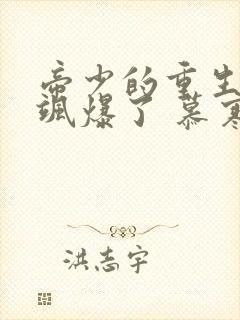 帝少的重生
飒爆了 慕寒
洪志宇